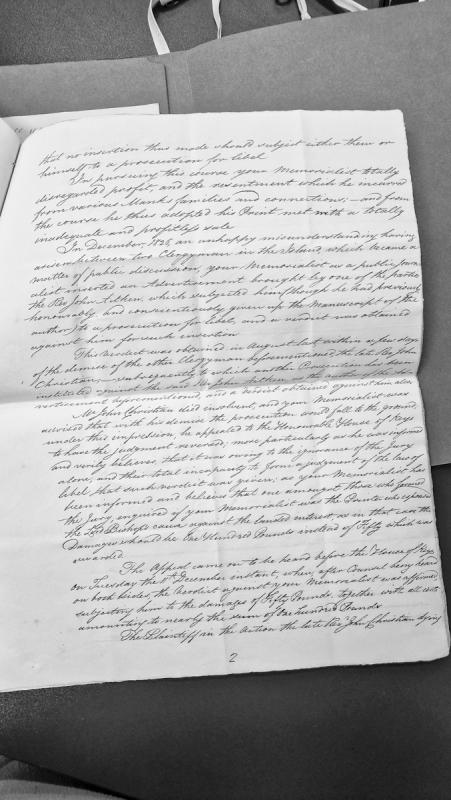 that no insertion thus made should subject either them or
himself to a prosecution for libel
In pursuing this course your Memorialist totally
disregarded profit, and the resentment which he incurred
from various Manks families and connections;—and from
the course he thus adopted his Print met with a totally
inadequate and profitless sale
In December, 1825 an unhappy misunderstanding having
arisen between two Clergymen in the Island, which became a
matter of public discussion, your Memorialist as a public Journ
alist inserted an Advertisement brought by one of the parties
the Rev John Aitken, which subjected him (though he had previously
honourably and conscientiously given up the Manuscript of the
author) to a prosecution for libel, and a verdict was obtained
against him for such insertion
This Verdict was obtained in August last within a few days
of the demise of the other Clergyman beforementioned, the late Rev John
Christian; subsequently to which another Prosecution was
instituted against the said Rev John Aitken as the author of the Ad-
vertisement aforementioned, and a verdict obtained against him also
Mr John Christian died insolvent, and your Memorialist was
advised that with his demise the prosecution would fall to the ground,
under this impression, he appealed to the Honourable House of Keys
to have the Judgment reversed; more particularly as he was informed
and verily believes, that it was owing to the ignorance of the Jury
alone, and their total incapacity to form a judgement of the law of
libel that such verdict was given; as your Memorialist has
been informed and believes that one amongst those who formed
the Jury, enquired if your Memorialist was the Printer who espoused
the Lord Bishops cause against the landed interest, as in that case the
Damages should be One Hundred Pounds instead of Fifty which was
awarded
The Appeal came on to be heard before the House of Keys
on Tuesday the 11th December instant, when, after Counsel being heard
on both sides, the Verdict against your Memorialist was affirmed,
subjecting him to the damages of Fifty Pounds, together with all costs
amounting to nearly the sum of One hundred Pounds
The Plaintiff in the action the late Rev John Christian dying
2